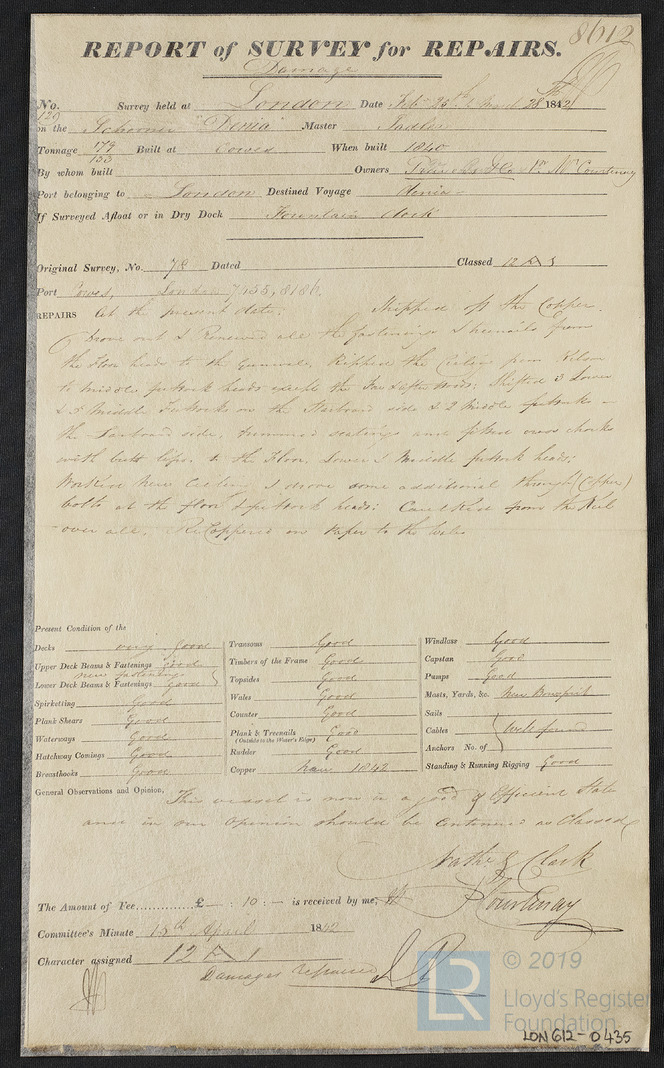 8612
REPORT of SURVEY for REPAIRS.
Damage
No. 129 Survey held at London Date Feb 25th & March 28th 1842
on the Schooner "Denia" Master
Tonnage 179 Built at Cowes When built 1840
155
By whom built Owners & Co
Port belonging to London Destined Voyage Denia
If Surveyed Afloat or in Dry Dock Fountain dock
Original Survey, No. 78 Dated Classed 12 A 1
Port Cowes, London 7,155, 8186
REPAIRS At the present date. Stripped off the Copper.
Drove out & Renewed all the fastenings & treenails from
the Floor heads to the Gunwale, Ripped the Ceiling from Kelson
to middle futtock heads except the Fore & after Hoods; Shifted 3 Lower
& 5 Middle Futtocks on the Starboard side & 2 Middle futtocks
the Larboard side, trimmed scatings and fitted cross chocks
with butts to the Floor, Lower & Middle futtock heads;
Worked New Ceiling & drove some additional through (Copper)
bolts at the floor & futtock heads; Caulked from the Keel
over all, ReCoppered on paper to the Wales
Present Condition of the
Decks very Good
Upper Deck Beams & Fastenings Good
new fastenings
Lower Deck Beams & Fastenings Good
Spirketting Good
Plank Shears Good
Waterways Good
Hatchway Comings Good
Breasthooks Good
Transoms Good
Timbers of the Frame Good
Topsides Good
Wales Good
Counter Good
Plank & Treenails Good
(Outside to the Water's Edge)
Rudder Good
Copper New 1842
Windlass Good
Capstan Good
Pumps Good
Masts, Yards, &c. New Bowsprit
Sails
Cables Well found
Anchors No. of
Standing & Running Rigging Good
General Observations and Opinion, This vessel is now in a good & Efficient State
and in our Opinion should be Continued as Classed
Nathl. G Clark
Courtenay
The Amount of Fee £ — : 10 : — is received by me,
Committee's Minute 15th April 1842
Character assigned 12 A 1
Damages repaired
© 2019
LR
Lloyd's Register
Foundation
LON 612-0435